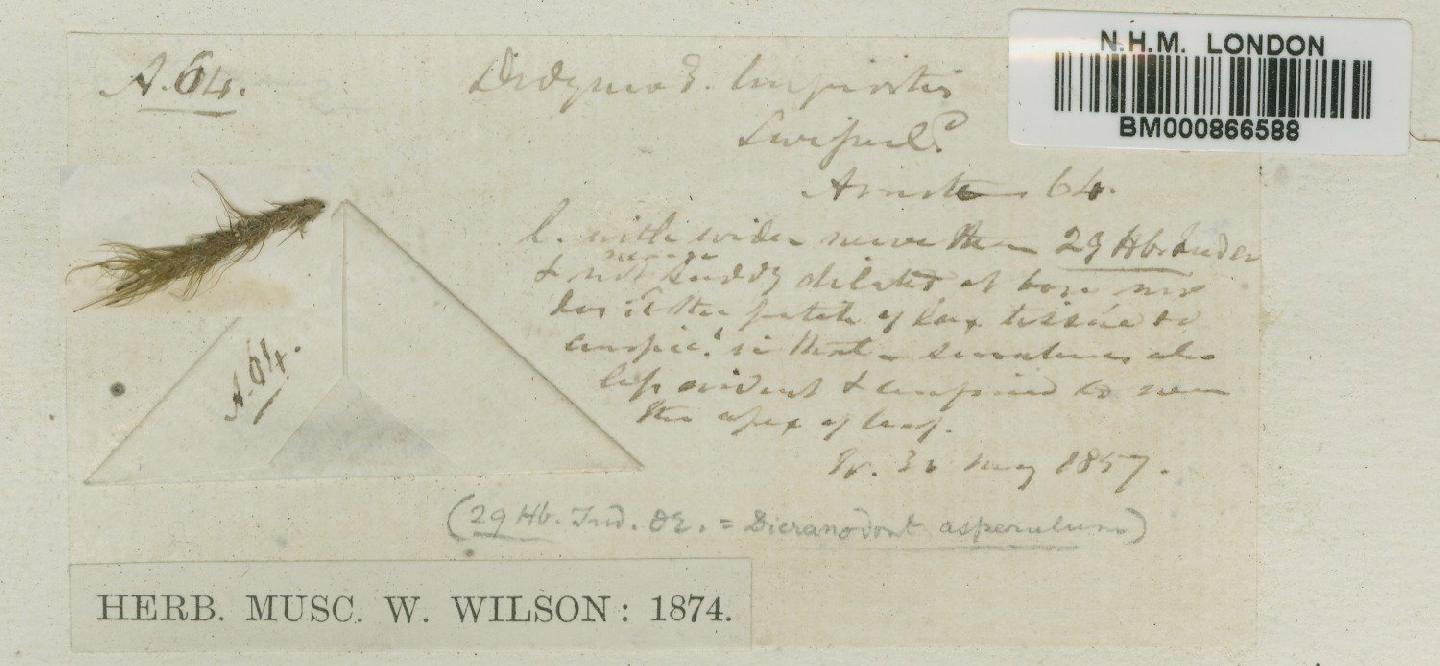 N.H.M. LONDON
BM000866588
A. 64.
64.
l. with wider nerve than 29 Hb. Ind or
& not suddy dilated at base nor
has it the patch of lax tissue so
conspic. in that – serratures also
less evident & confined to near
the apex of leaf.
May 1857.
A. 64.
(29 Hb. Ind. Or. = Dicranodont asperulum)
HERB. MUSC. W. WILSON: 1874.